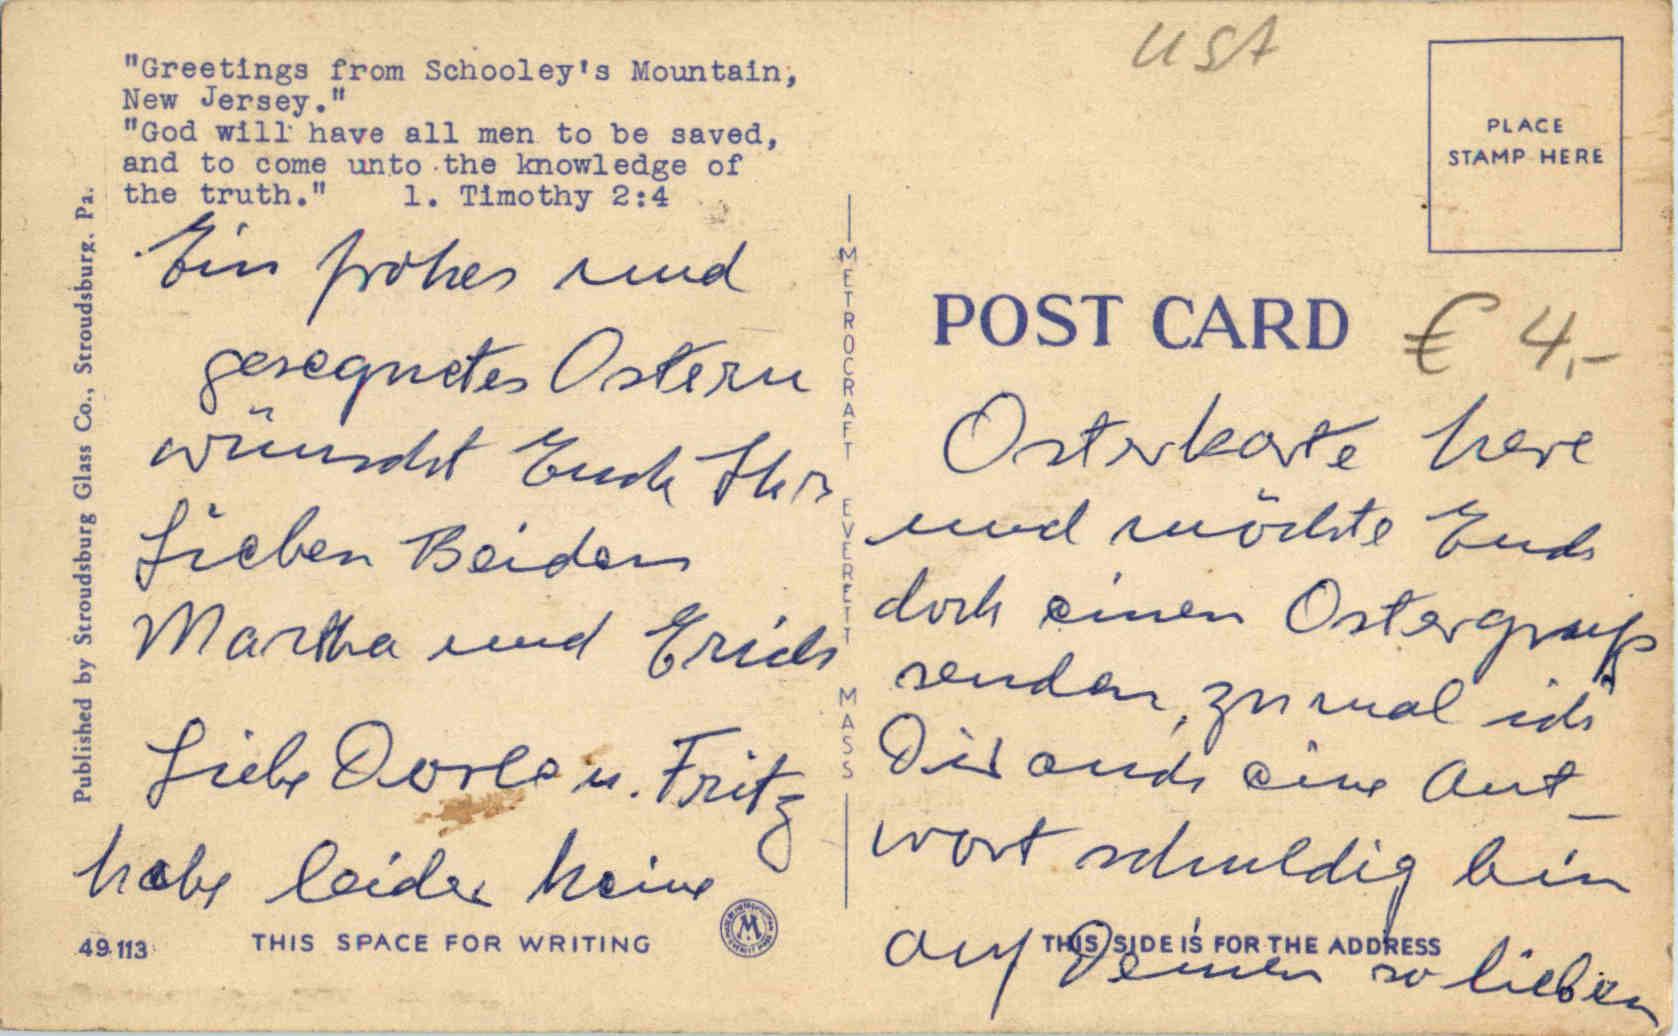 USA
"Greetings from Schooley's Mountain,
New Jersey."
"God will have all men to be saved,
and to come unto the knowledge of
the truth."    1. Timothy 2:4
Ein frohes und
gesegnetes Ostern
wünscht Euch Ihr
Lieben Beiden
Martha und Erich
Liebe Dorle u. Fritz
habe leider keine
49113
THIS SPACE FOR WRITING
Published by Stroudsburg Glass Co., Stroudsburg, Pa.
METROCRAFT EVERETT MASS
M
PLACE
STAMP HERE
POST CARD
€ 4,-
Osterkarte here
und möchte Euch
doch einen Ostergruß
senden, zumal ich
Dir auch eine Ant-
wort schuldig bin
auf Deinen so lieben
THIS SIDE IS FOR THE ADDRESS